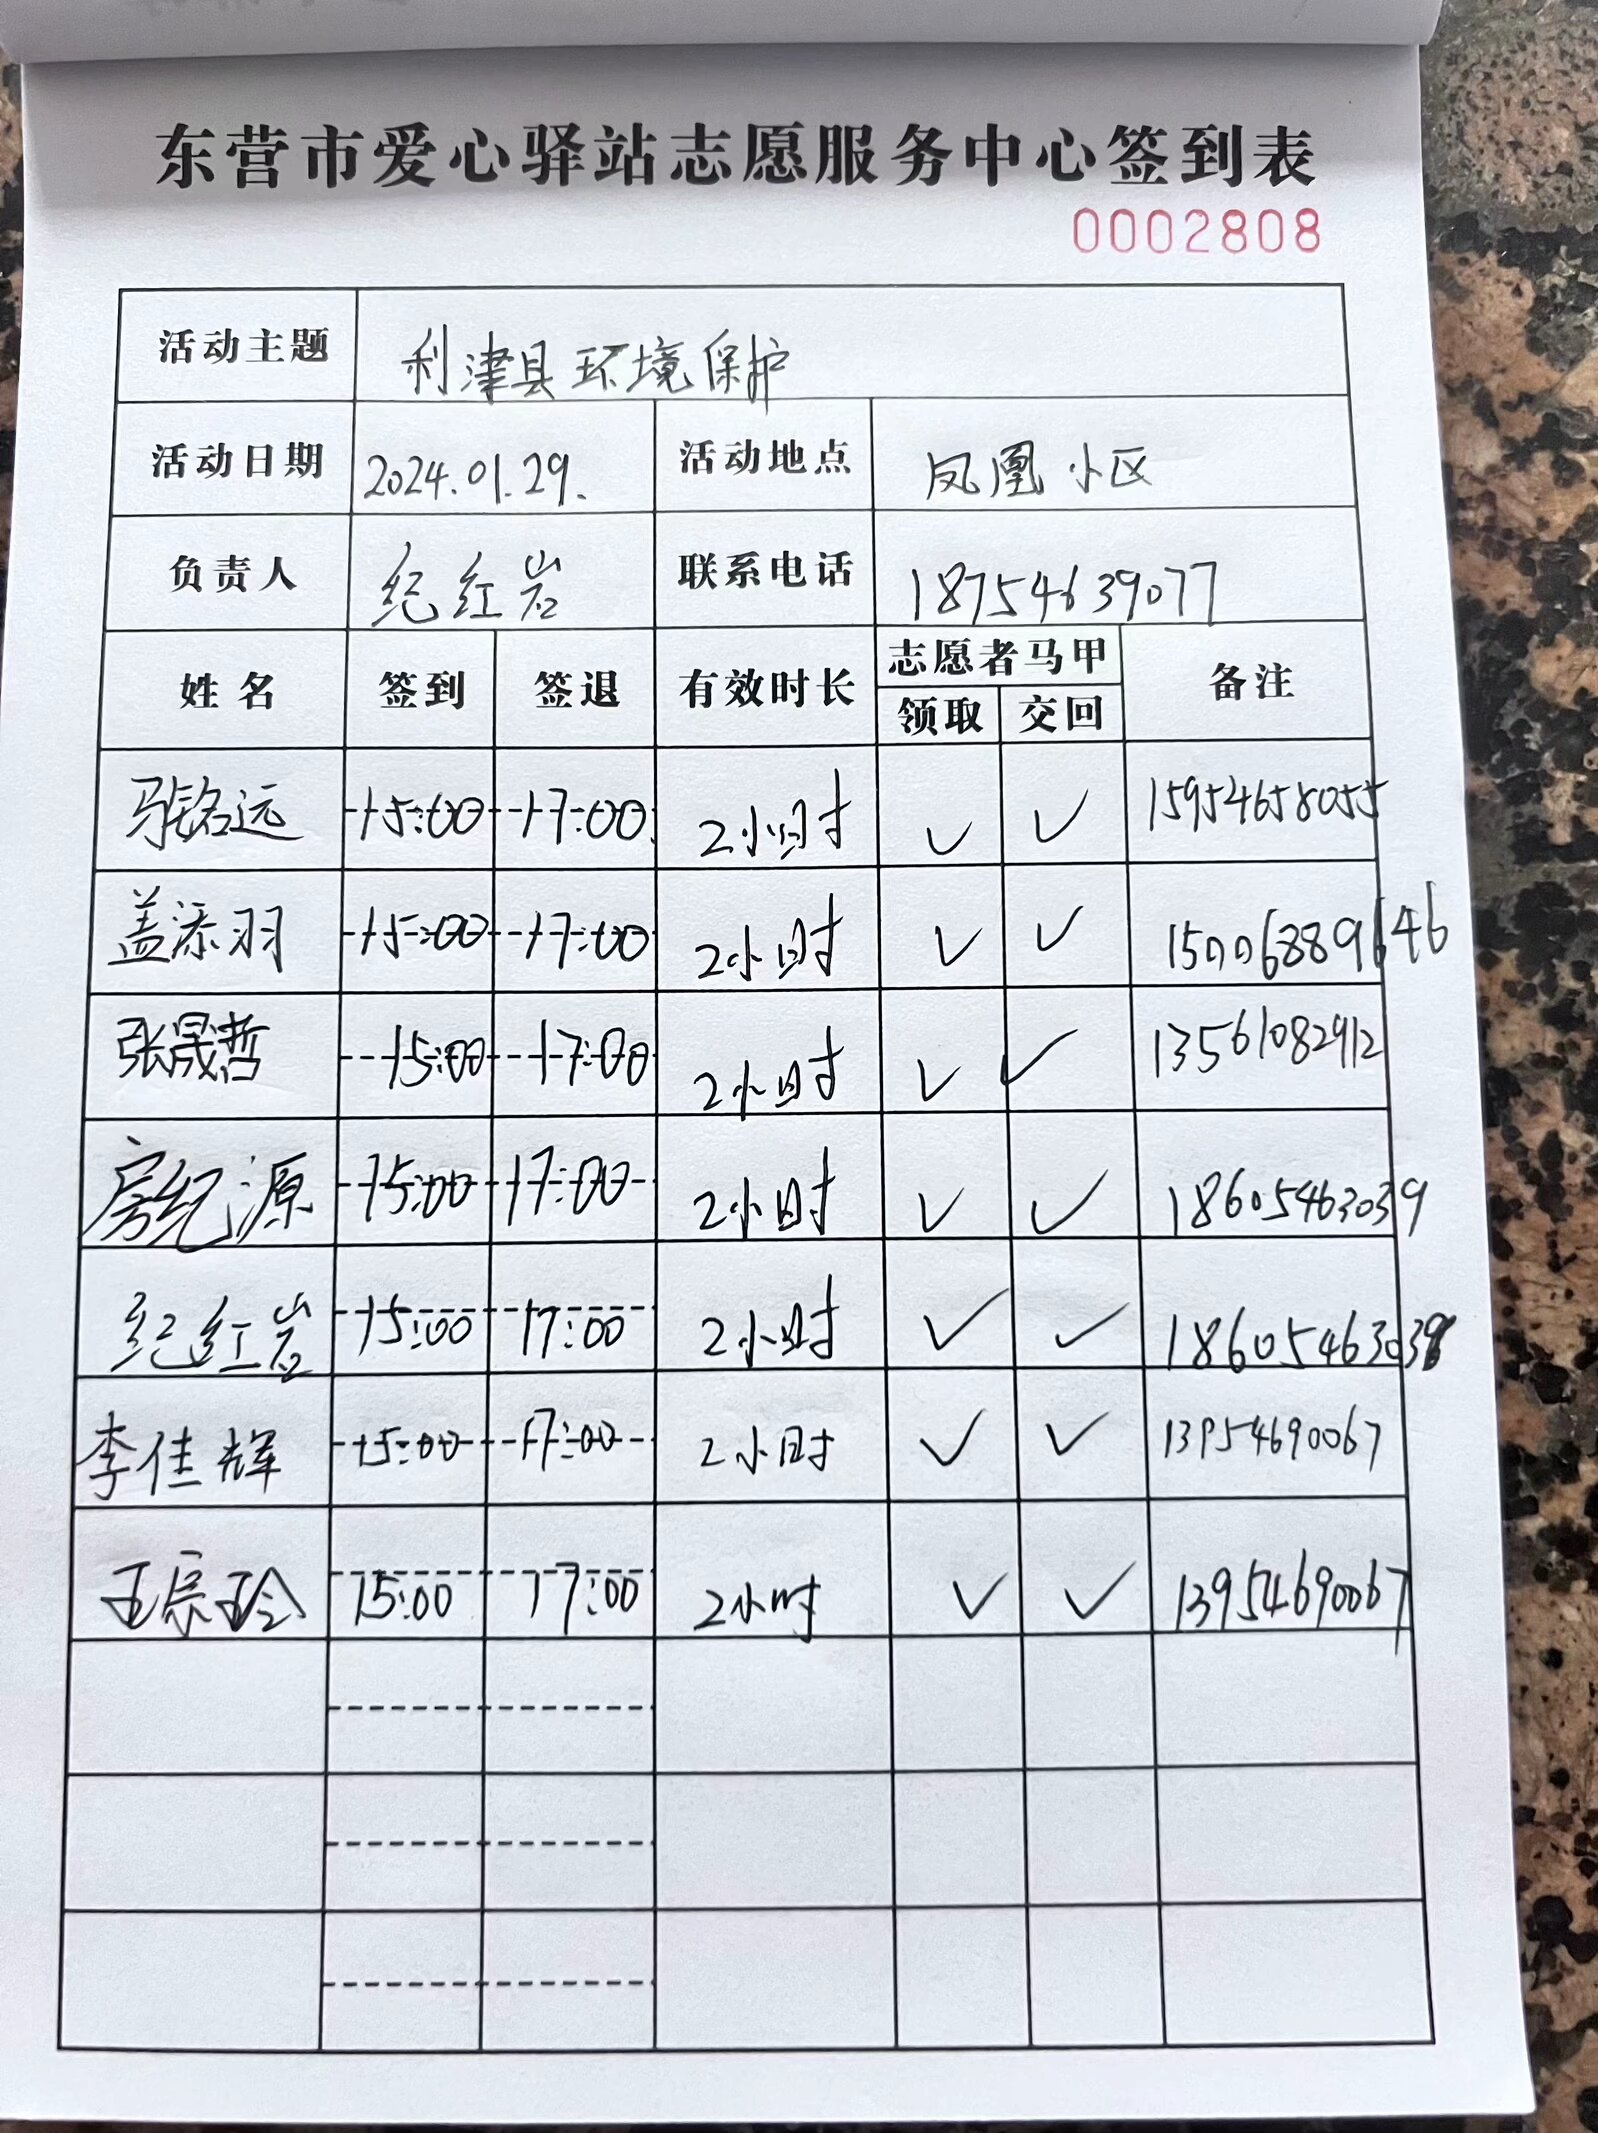 东营市爱心驿站志愿服务中心签到表
0002808
活动主题 利津县环境保护
活动日期 2024.01.29. 活动地点 凤凰小区
负责人 纪红岩 联系电话 18754639077
姓名 签到 签退 有效时长 志愿者马甲 备注
领取 交回
张铭远 15:00 17:00 2小时 ✓ ✓ 15954658055
盖添羽 15:00 17:00 2小时 ✓ ✓ 15006889646
张晟哲 15:00 17:00 2小时 ✓ ✓ 13561082912
房纪源 15:00 17:00 2小时 ✓ ✓ 18605463039
纪红岩 15:00 17:00 2小时 ✓ ✓
李佳辉 15:00 17:00 2小时 ✓ ✓ 13954690067
王宗玲 15:00 17:00 2小时 ✓ ✓ 13954690067